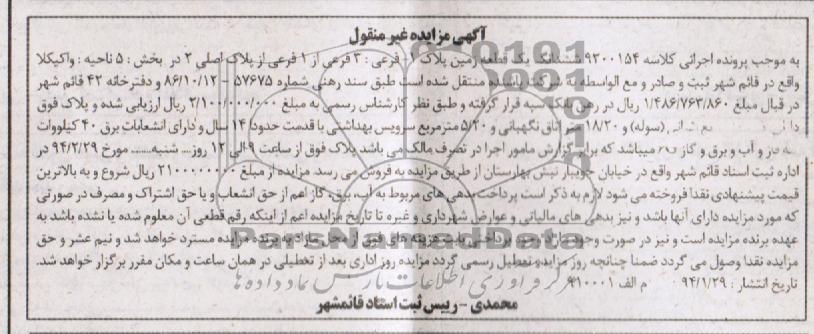 آگهی مزایده غیر منقول
به موجب پرونده اجرائی کلاسه ۹۲۰۰۱۵۴ ششدانگ یک قطعه زمین پلاک ۱- فرعی : ۳ فرعی از ۱ فرعی از پلاک اصلی ۲ در بخش : ۵ ناحیه : واکیکلا
واقع در قائم شهر ثبت و صادر و مع الواسطه به شرکت یاشده منتقل شده است طبق سند رهنی شماره ۵۷۶۷۵ - ۸۶/۱۰/۱۲ و دفترخانه ۴۲ قائم شهر
در قبال مبلغ ۱/۴۸۶/۷۶۳/۸۶۰ ریال در رهن بانک سپه قرار گرفته و طبق نظر کارشناس رسمی به مبلغ ۲/۱۰۰/۰۰۰/۰۰۰ ریال ارزیابی شده و پلاک فوق
(سوله) و ۱۸/۲۰ متر اتاق نگهبانی و ۵/۲۰ مترمربع سرویس بهداشتی با قدمت حدود ۱۴ سال و دارای انشعابات برق ۴۰ کیلووات
فاز و آب و برق و گاز میباشد که برابر گزارش مامور اجرا در تصرف مالک می باشد پلاک فوق از ساعت ۹ الی ۱۲ روز.... شنبه....... مورخ ۹۴/۲/۲۹ در
اداره ثبت اسناد قائم شهر واقع در خیابان جویبار نبش بهارستان از طریق مزایده به فروش می رسد. مزایده از مبلغ ۲۱۰۰۰۰۰۰۰۰ ریال شروع و به بالاترین
قیمت پیشنهادی نقدا فروخته می شود لازم به ذکر است پرداخت بدهی های مربوط به آب، برق، گاز اعم از حق انشعاب و یا حق اشتراک و مصرف در صورتی
که مورد مزایده دارای آنها باشد و نیز بدهی های مالیاتی و عوارض شهرداری و غیره تا تاریخ مزایده اعم از اینکه رقم قطعی آن معلوم شده یا نشده باشد به
عهده برنده مزایده است و نیز در صورت وجود مازاد وجوه پرداختی بابت هزینه های فوق از محل مازاد به برنده مزایده مسترد خواهد شد و نیم عشر و حق
مزایده نقدا وصول می گردد ضمنا چنانچه روز مزایده تعطیل رسمی گردد مزایده روز اداری بعد از تعطیلی در همان ساعت و مکان مقرر برگزار خواهد شد.
تاریخ انتشار : ۹۴/۱/۲۹ م الف ۹۱۰۰۰۱
محمدی - رییس ثبت اسناد قائمشهر
ParsNamadData
مرکز فرآوری اطلاعات پارس نماد داده ها